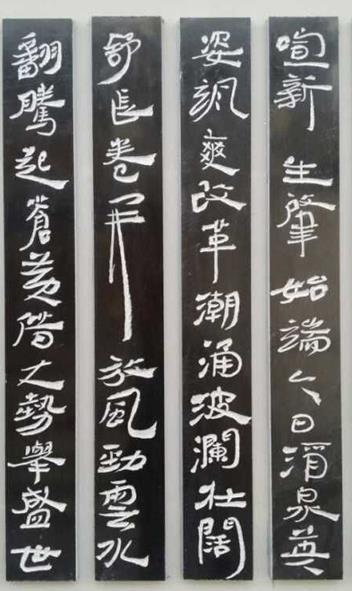 喧新生肇始端今日涓泉英
姿颯爽改革潮涌波瀾壯闊
舒長卷开放風勁雲水
翻騰起蒼黃借大勢舉盛世